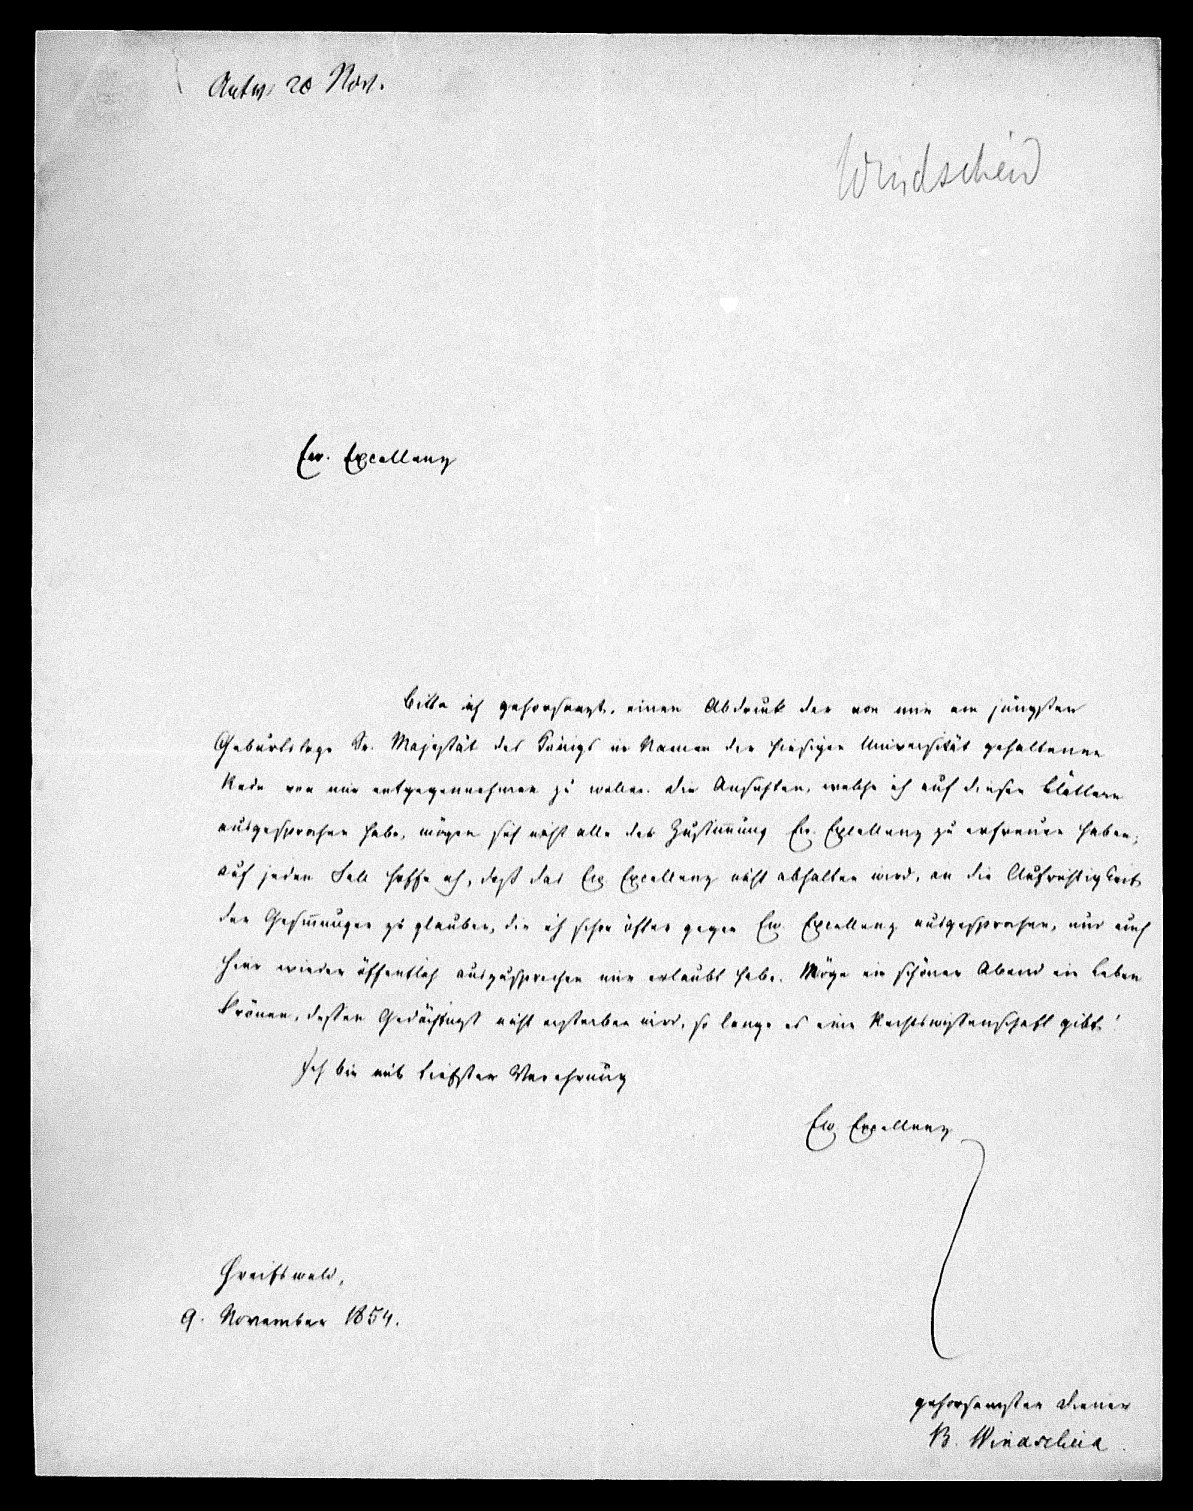 Antw. 20 Nov.
Windscheid
Ew. Excellenz
bitte ich gehorsamst, einen Abdruck der von mir am jüngsten
Geburtstage Sr. Majestät des Königs im Namen der hiesigen Universität gehaltenen
Rede von mir entgegennehmen zu wollen. Die Ansichten, welche ich auf diesen Blättern
ausgesprochen habe, mögen sich nicht alle der Zustimmung Ew. Excellenz zu erfreuen haben;
auf jeden Fall hoffe ich, daß das Ew. Excellenz nicht abhalten wird, an die Aufrichtigkeit
der Gesinnungen zu glauben, die ich schon öfter gegen Ew. Excellenz ausgesprochen, und auch
hier wieder öffentlich auszusprechen mir erlaubt habe. Möge ein schöner Abend ein Leben
krönen, dessen Gedächtniß nicht ersterben wird, so lange es eine Rechtswissenschaft gibt!
Ich bin mit tiefster Verehrung
Ew. Excellenz
Greifswald,
9. November 1854.
gehorsamster Diener
B. Windscheid.